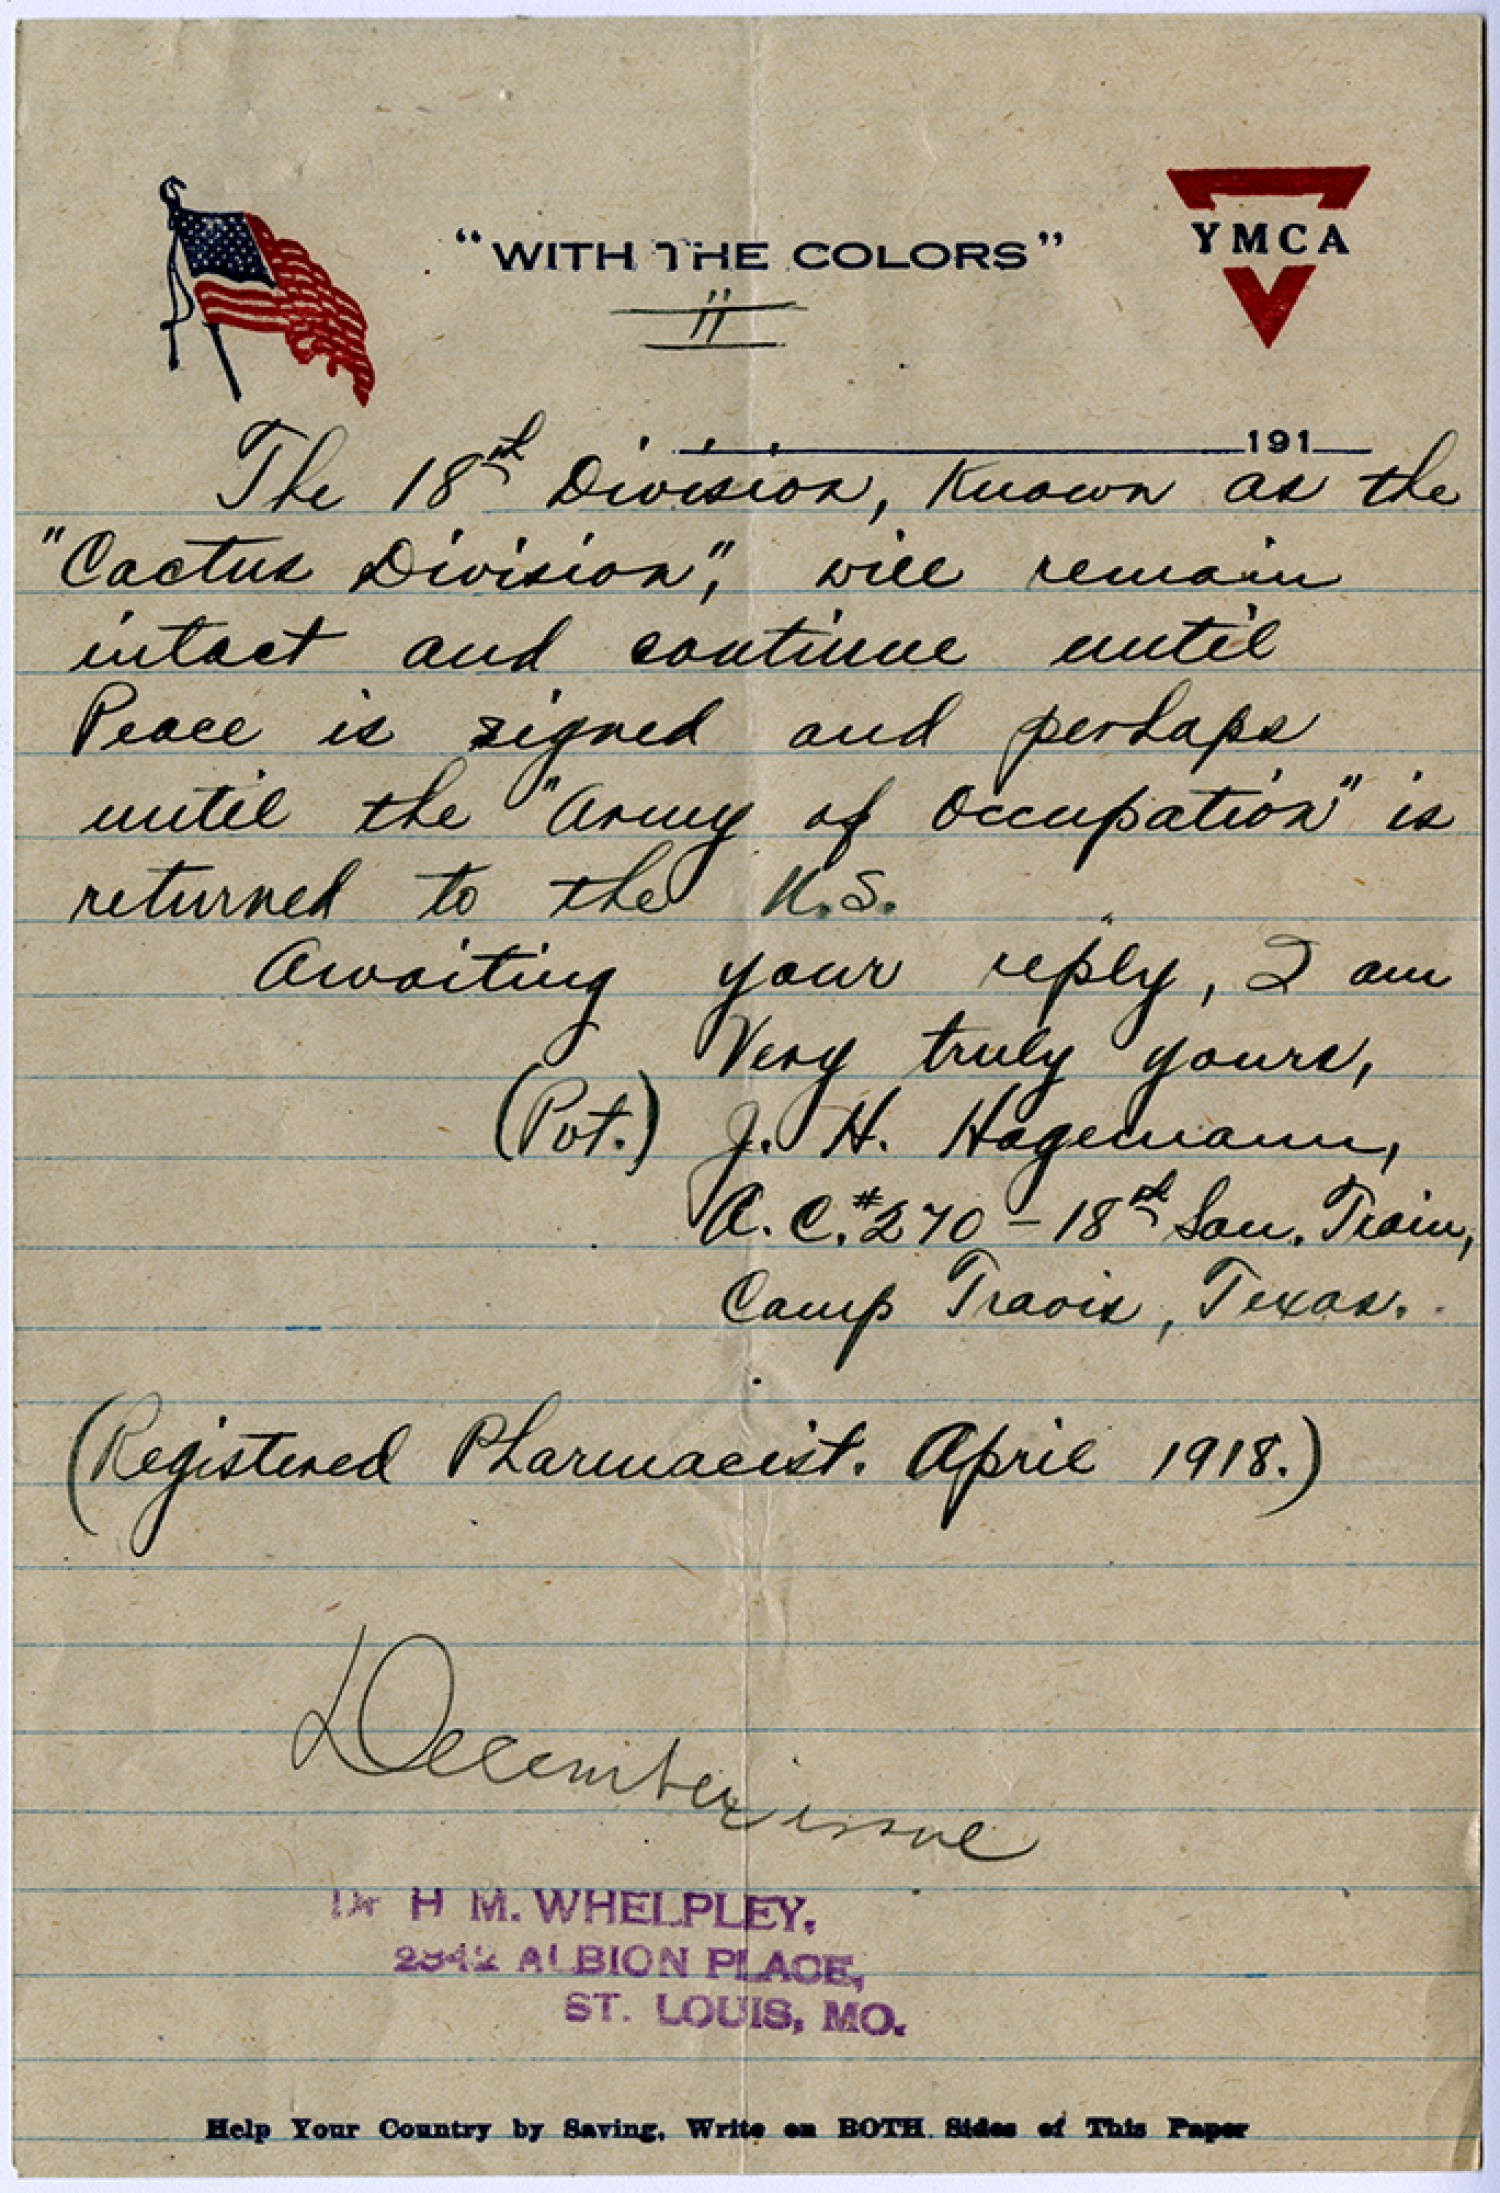 "WITH THE COLORS"
YMCA
11
191
The 18th Division, Known as the
"Cactus Division", will remain
intact and continue until
Peace is signed and perhaps
until the "Army of Occupation" is
returned to the U.S.
Awaiting your reply, I am
Very truly yours,
(Pvt.) J. H. Hagemann,
A. C. #270 - 18th San. Train,
Camp Travis, Texas.
(Registered Pharmacist. April 1918.)
December issue
Dr H M. WHELPLEY,
2342 ALBION PLACE,
ST. LOUIS, MO.
Help Your Country by Saving, Write on BOTH Sides of This Paper